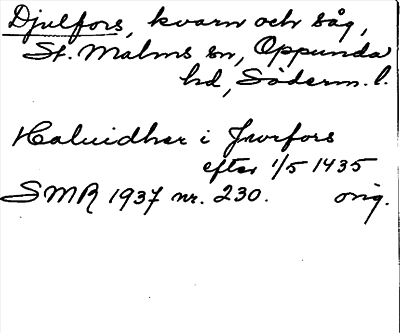 Djulfors, kvarn och såg,
St. Malms sn, Oppunda
hd, Söderm. l.
Haluidher i Jworfors
efter 1/5 1435
SMR 1937 nr. 230. orig.